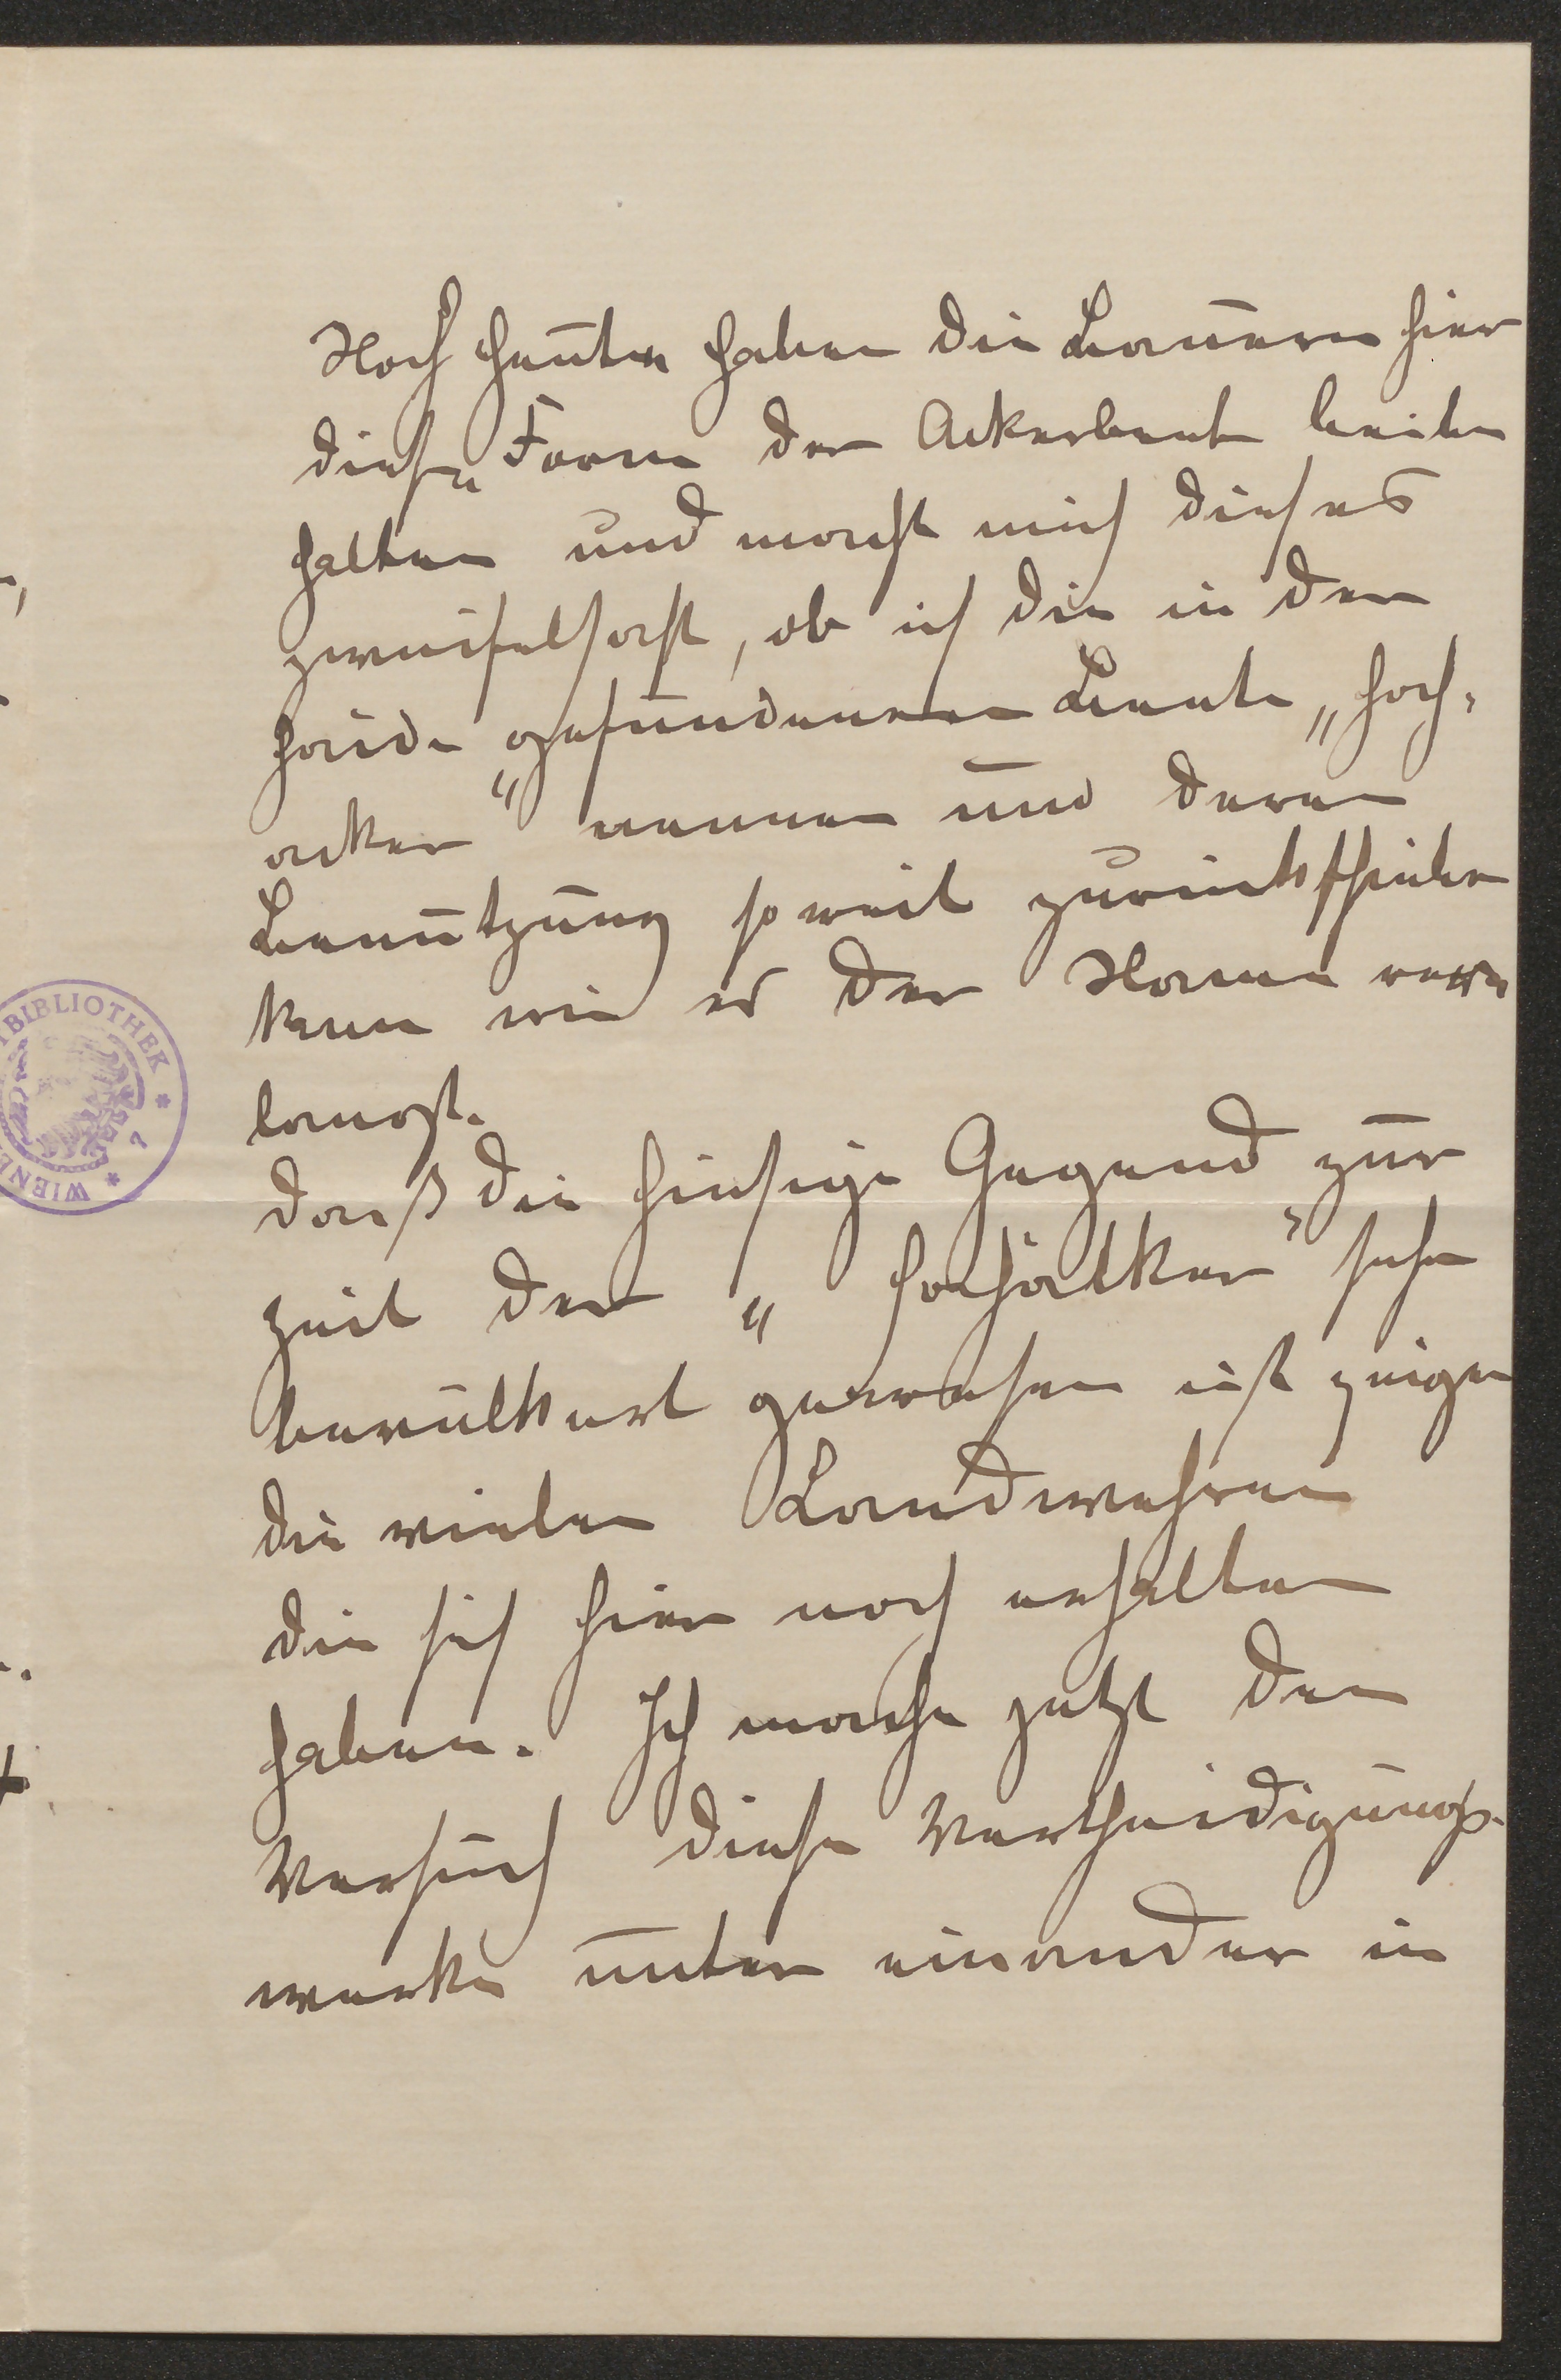 Noch heute haben die Bauern hier
diese Form der Ackerbeete beibe
halten und macht mich dieses
zweifelhaft, ob ich die in der
Haide gefundenen Beete „Hoch=
acker" nennen und deren
Benutzung so weit zurückschieben
kann wie es der Name ver
langt.
Daß die hiesige Gegend zur
Zeit der „Hochäcker" sehr
bevölkert gewesen ist zeigen
die vielen Landwehren
die sich hier noch erhalten
haben. Ich mache jetzt den
Versuch diese Vertheidigungs-
werke unter einander in
BIBLIOTHEK * 7 * WIENE